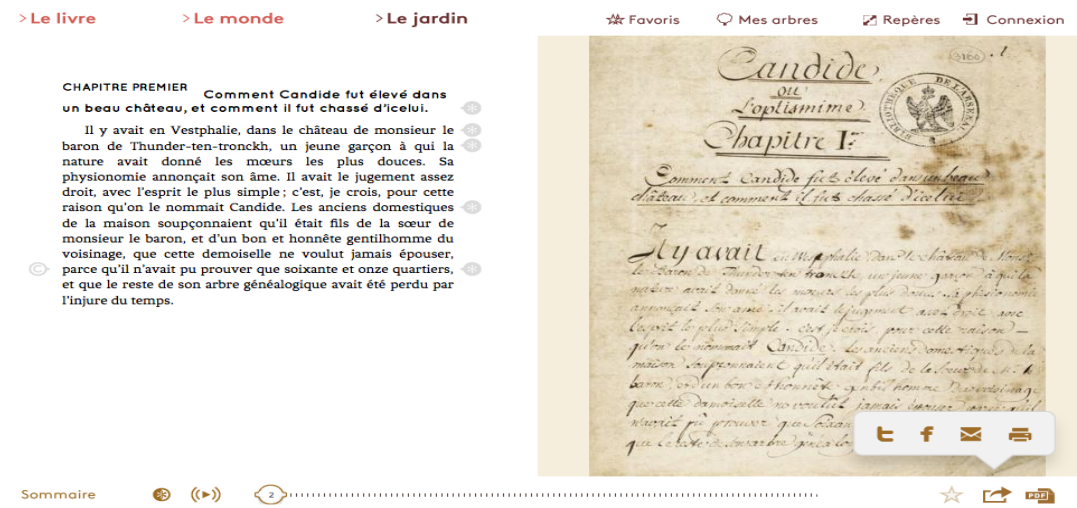 >Le livre >Le monde >Le jardin Favoris Mes arbres Repères Connexion
CHAPITRE PREMIER Comment Candide fut élevé dans
un beau château, et comment il fut chassé d'icelui.
Il y avait en Vestphalie, dans le château de monsieur le
baron de Thunder-ten-tronckh, un jeune garçon à qui la
nature avait donné les mœurs les plus douces. Sa
physionomie annonçait son âme. Il avait le jugement assez
droit, avec l'esprit le plus simple ; c'est, je crois, pour cette
raison qu'on le nommait Candide. Les anciens domestiques
de la maison soupçonnaient qu'il était fils de la sœur de
monsieur le baron, et d'un bon et honnête gentilhomme du
voisinage, que cette demoiselle ne voulut jamais épouser,
parce qu'il n'avait pu prouver que soixante et onze quartiers,
et que le reste de son arbre généalogique avait été perdu par
l'injure du temps.
Candide,
ou
l'optimisme.
Chapitre I.er
Comment Candide fut élevé dans un beau
château, et comment il fut chassé d'icelui.
BIBLIOTHEQUE DE L'ARSENAL
Il y avait en Westphalie dans le château de Mons.
le Baron de Thunder ten tronckh, un jeune garçon à qui la
nature avait donné les mœurs les plus douces. Sa phisionomie
annonçait son ame. il avait le jugement assez droit avec
l'esprit le plus simple. c'est, je crois, pour cette raison
qu'on le nommait Candide. les anciens domestiques de la
maison soupçonnaient qu'il était fils de la sœur de M. le
baron, et d'un bon et honnête gentilhomme du voisinage,
que cette demoiselle ne voulut jamais épouser
n'avait pû prouver que soixan
que le reste de son arbre généalo
Sommaire 2 PDF